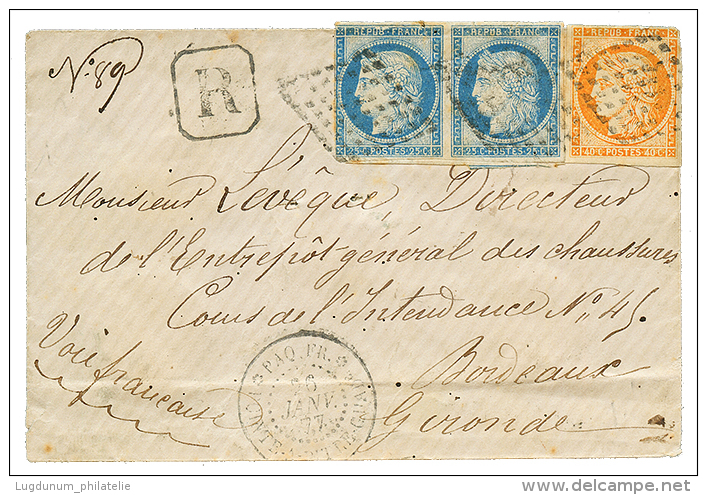 N° 89
R
REPUB. FRANC.
25c POSTES 25c
REPUB. FRANC.
25c POSTES 25c
REPUB. FRANC.
40c POSTES 40c
Monsieur Lévêque, Directeur
de l'Entrepôt général des chaussures
Cours de l'Intendance N° 45.
Bordeaux
Gironde
Voie française
PAQ. FR.
JANV.
77
Lugdunum_philatelie
delcampe.net